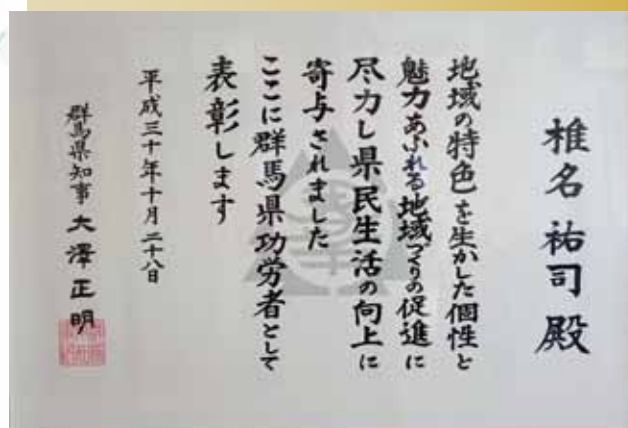 椎名祐司殿
地域の特色を生かした個性と
魅力あふれる地域づくりの促進に
尽力し県民生活の向上に
寄与されました
ここに群馬県功労者として
表彰します
平成三十年十月二十八日
群馬県知事 大澤正明